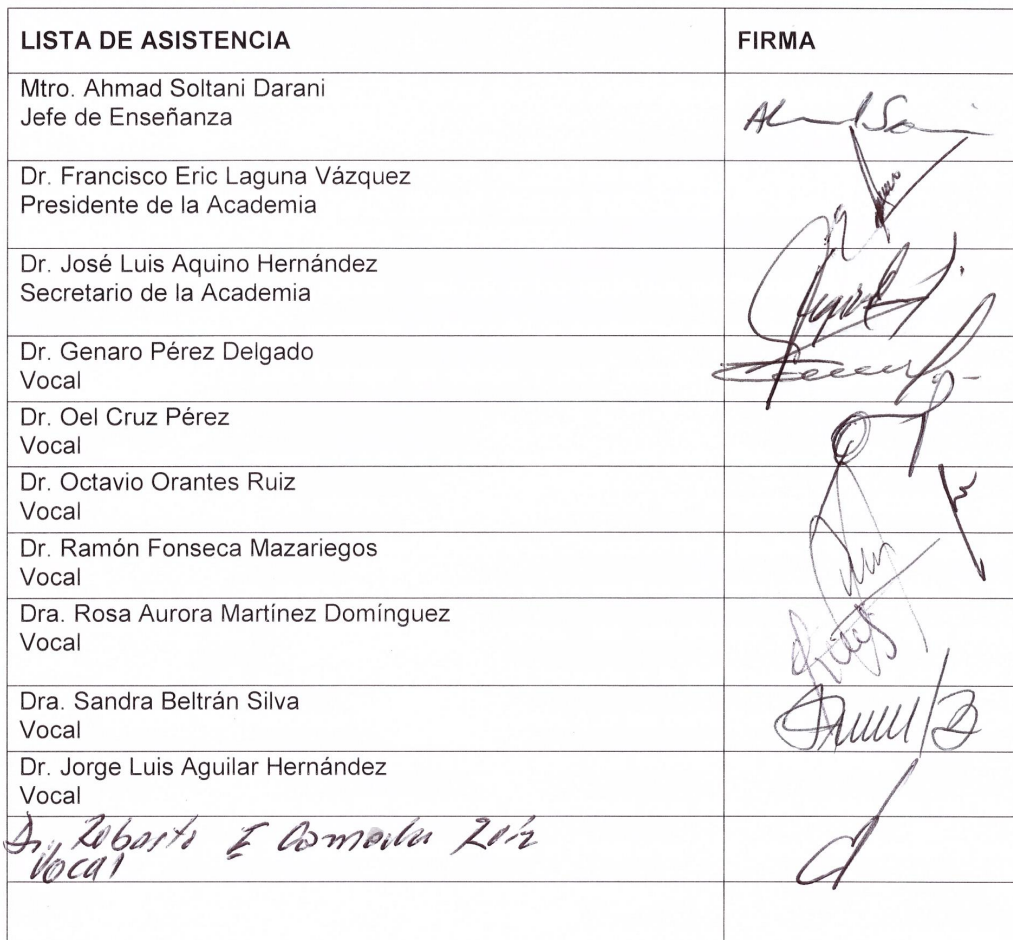 LISTA DE ASISTENCIA FIRMA
Mtro. Ahmad Soltani Darani
Jefe de Enseñanza
Dr. Francisco Eric Laguna Vázquez
Presidente de la Academia
Dr. José Luis Aquino Hernández
Secretario de la Academia
Dr. Genaro Pérez Delgado
Vocal
Dr. Oel Cruz Pérez
Vocal
Dr. Octavio Orantes Ruiz
Vocal
Dr. Ramón Fonseca Mazariegos
Vocal
Dra. Rosa Aurora Martínez Domínguez
Vocal
Dra. Sandra Beltrán Silva
Vocal
Dr. Jorge Luis Aguilar Hernández
Vocal
Dr. Roberto I
Vocal